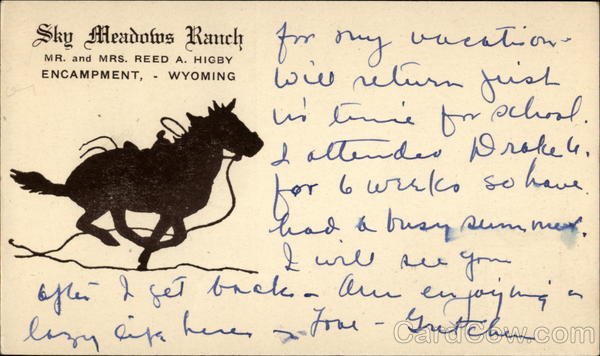 Sky Meadows Ranch
MR. and MRS. REED A. HIGBY
ENCAMPMENT, - WYOMING
for my vacation -
will return just
in time for school.
I attended Drake U.
for 6 weeks so have
had a busy summer.
I will see you
after I get back - Am enjoying a
lazy life here - Love - Gretchen
CardCow.com